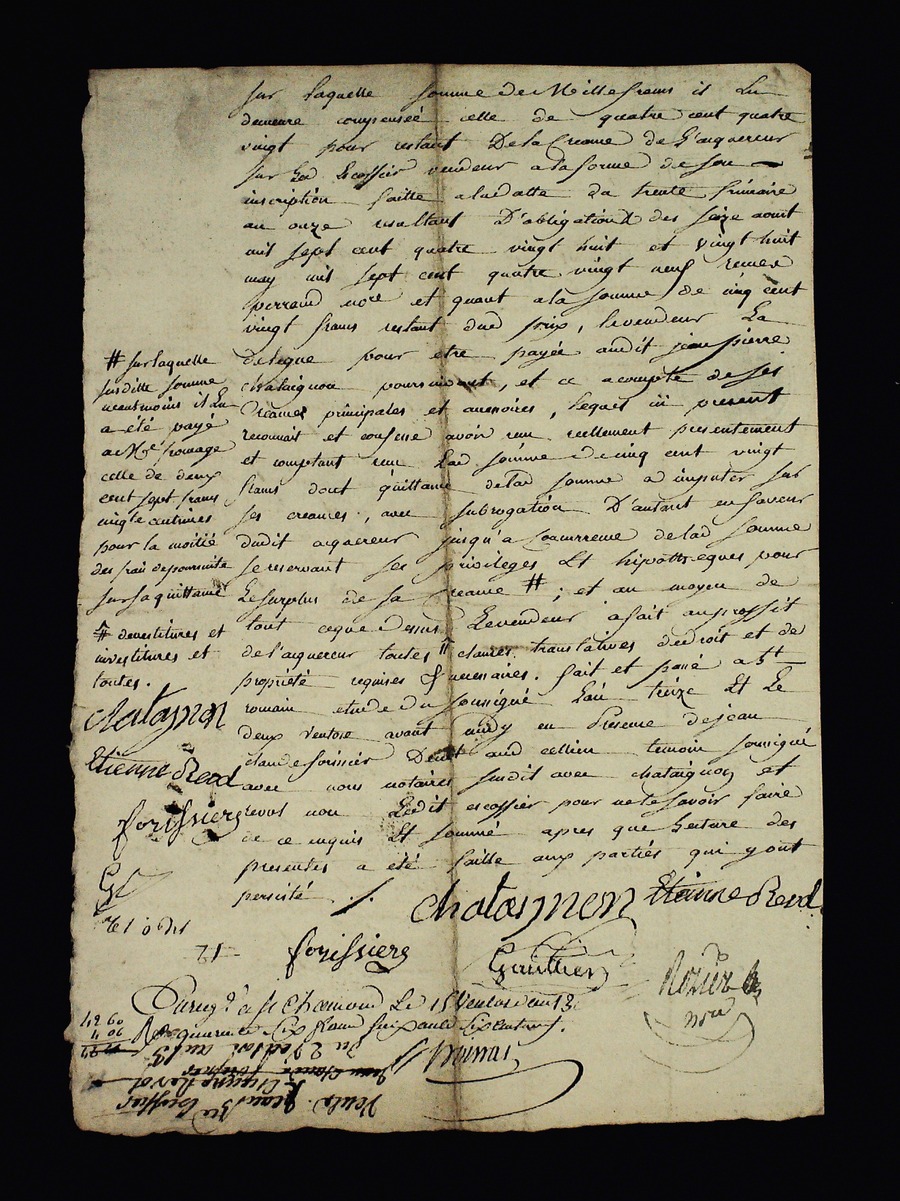 sur laquelle somme de Mille frans il lui
demeure compensée celle de quatre cent quatre
vingt pour restant De la Creance de L'aquereur
sur Led Escoffier vendeur a la forme de son
inscription faitte a la datte du trente frimaire
an onze resultant D'obligation des seize aout
mil sept cent quatre vingt huit et vingt huit
may mil sept cent quatre vingt neuf
perraud nore et quant a la somme de cinq cent
vingt frans restant dud prix, le vendeur La
delegue pour etre payée audit jean pierre
chataignon poursuivant, et ce acompte de ses
Creances principales et accesoires, lequel ici present
reconnait et confesse avoir reellement presentement
et comptant reçu Lad somme de cinq cent vingt
frans dont quittance de lad somme a imputer sur
ses creances, avec subrogation D'autant en faveur
dudit aquereur jusqu'a Concurrence de lad somme
se reservant ses privileges Et hipotheques pour
Le surplus de sa Creance # ; et au moyen de
tout ceque dessus Le vendeur a fait au proffit
de l'aquereur toutes # clauses translatives de droit et de
propriété requises & necessaires. fait et passé a St
romain etude du soussigné L'an treize Et Le
deux Ventose avant midy en Presence de jean
claude forissier Dem.t aud cellieu temoin soussigné
avec nous notaires susdit avec chataignon et
revol non Ledit escoffier pour ne le savoir faire
de ce enquis Et sommé apres que lecture des
presentes a été faitte aux parties qui y ont
persisté ./.
# sur laquelle
susditte somme
neantmoins il lui
a été payé
a Me fromage
celle de deux
cent sept frans
vingt centimes
pour la moitié
des frais de poursuite
sur sa quittance
# devestitures et
investitures et
toutes.
chataignon
Etienne Revol
forissier
chataignon Etienne Revol
forissier
Gaultier
nore
Enreg.é a St Chamond Le 15 Ventose an 13
Rç quarante six frans soixante six centimes.
42 60
4 06